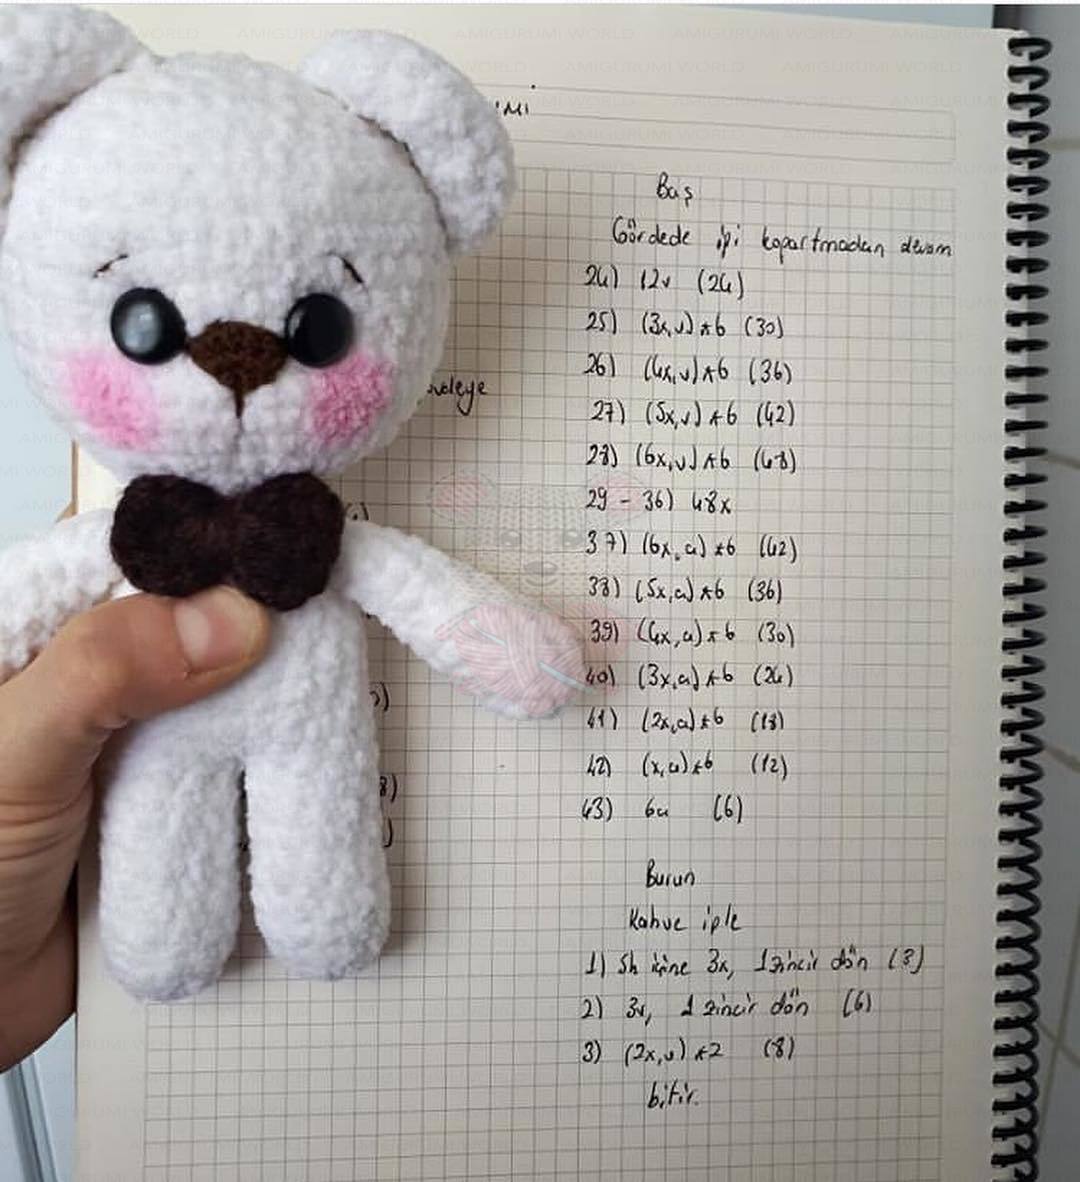 AMIGURUMI WORLD
Baş
Gördede ipi kopartmadan devam
24) 12v (24)
25) (3x,v)*6 (30)
26) (4x,v)*6 (36)
27) (5x,v)*6 (42)
28) (6x,v)*6 (48)
29 - 36) 48x
37) (6x,a)*6 (42)
38) (5x,a)*6 (36)
39) (4x,a)*6 (30)
40) (3x,a)*6 (24)
41) (2x,a)*6 (18)
42) (x,a)*6 (12)
43) 6a (6)
Burun
Kahve iple
1) Sh içine 3x, 1 zincir dön (3)
2) 3v, 1 zincir dön (6)
3) (2x,v)*2 (8)
bitir.